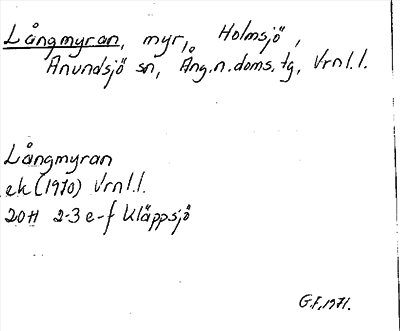 Långmyran, myr, Holmsjö,
Anundsjö sn, Ång.n.doms.tg, Vrnl.l.
Långmyran
ek (1970) Vrnl.l.
20H 2-3 e-f Kläppsjö
G.F. 1971.